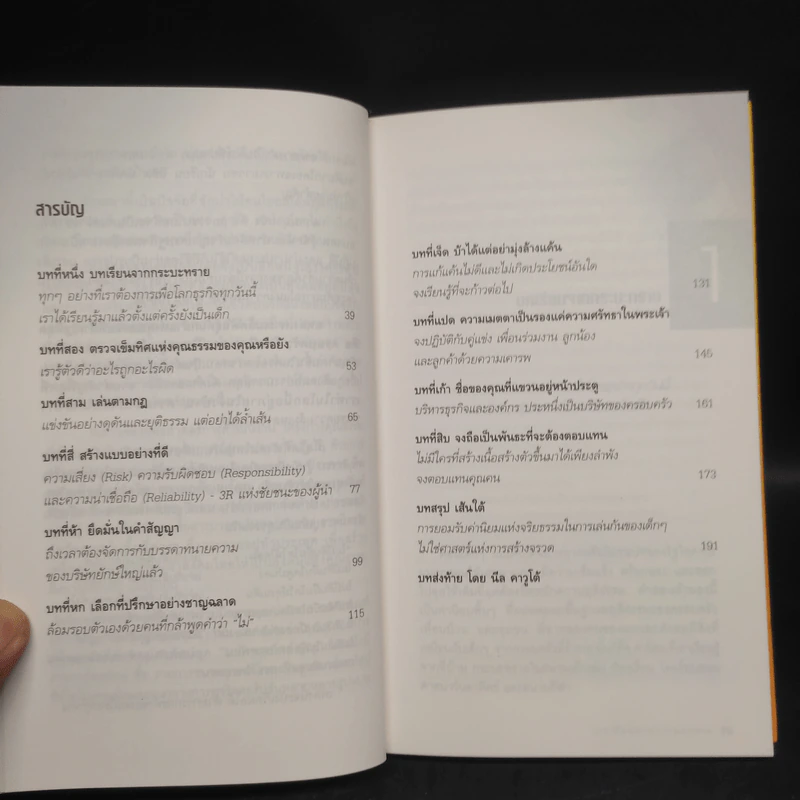 สารบัญ
บทที่หนึ่ง บทเรียนจากกระบะทราย
ทุกๆ อย่างที่เราต้องการเพื่อโลกธุรกิจทุกวันนี้
เราได้เรียนรู้มาแล้วตั้งแต่ครั้งยังเป็นเด็ก 39
บทที่สอง ตรวจเข็มทิศแห่งคุณธรรมของคุณหรือยัง
เรารู้ตัวดีว่าอะไรถูกอะไรผิด 53
บทที่สาม เล่นตามกฎ
แข่งขันอย่างดุดันและยุติธรรม แต่อย่าได้ล้ำเส้น 65
บทที่สี่ สร้างแบบอย่างที่ดี
ความเสี่ยง (Risk) ความรับผิดชอบ (Responsibility)
และความน่าเชื่อถือ (Reliability) - 3R แห่งชัยชนะของผู้นำ 77
บทที่ห้า ยึดมั่นในคำสัญญา
ถึงเวลาต้องจัดการกับบรรดาทนายความ
ของบริษัทยักษ์ใหญ่แล้ว 99
บทที่หก เลือกที่ปรึกษาอย่างชาญฉลาด
ล้อมรอบตัวเองด้วยคนที่กล้าพูดคำว่า "ไม่" 115
บทที่เจ็ด บ้าได้แต่อย่ามุ่งล้างแค้น
การแก้แค้นไม่ดีและไม่เกิดประโยชน์อันใด
จงเรียนรู้ที่จะก้าวต่อไป 131
บทที่แปด ความเมตตาเป็นรองแค่ความศรัทธาในพระเจ้า
จงปฏิบัติกับคู่แข่ง เพื่อนร่วมงาน ลูกน้อง
และลูกค้าด้วยความเคารพ 145
บทที่เก้า ชื่อของคุณที่แขวนอยู่หน้าประตู
บริหารธุรกิจและองค์กร ประหนึ่งเป็นบริษัทของครอบครัว 161
บทที่สิบ จงถือเป็นพันธะที่จะต้องตอบแทน
ไม่มีใครที่สร้างเนื้อสร้างตัวขึ้นมาได้เพียงลำพัง
จงตอบแทนคุณคน 173
บทสรุป เส้นใต้
การยอมรับค่านิยมแห่งจริยธรรมในการเล่นกันของเด็กๆ
ไม่ใช่ศาสตร์แห่งการสร้างจรวด 191
บทส่งท้าย โดย นีล คาวูโต้